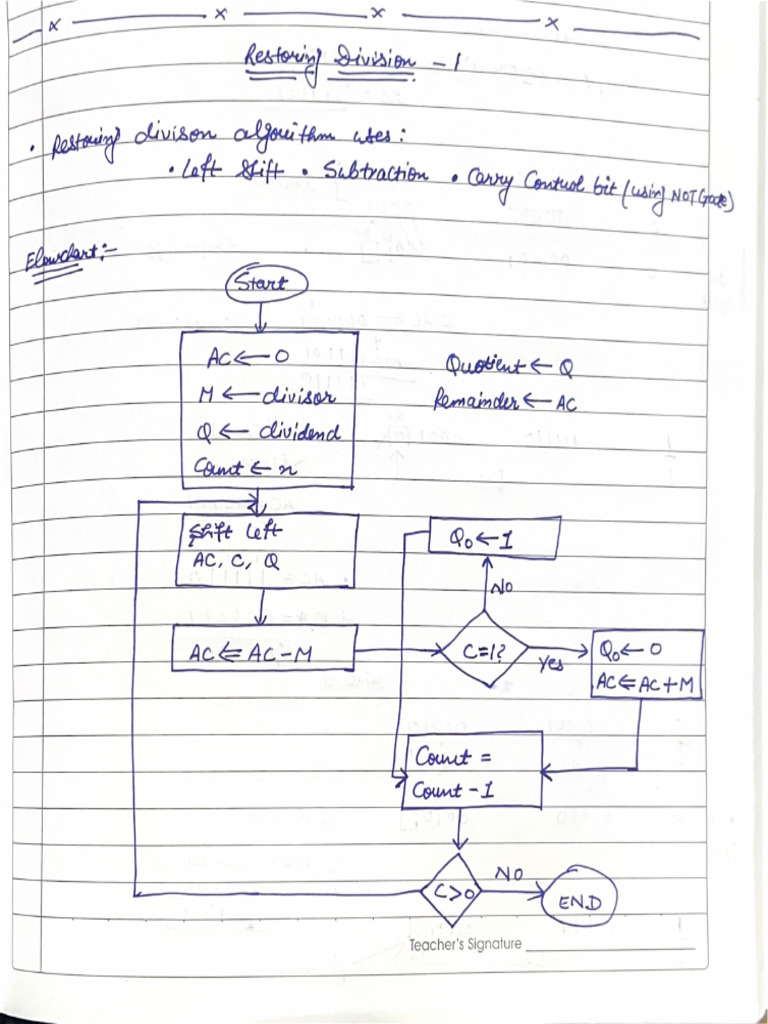 x x x x
Restoring Division - 1
• Restoring divison algorithm uses:
• Left Shift • Subtraction • Carry Control bit (using NOT Gate)
Flowchart:-
Start
AC ← 0
M ← divisor
Q ← dividend
Count ← n
Quotient ← Q
Remainder ← AC
Shift left
AC, C, Q
AC ⇐ AC - M
C=1?
NO
Q₀ ← 1
Yes
Q₀ ← 0
AC ⇐ AC + M
Count =
Count - 1
C>0
NO
END
Teacher's Signature